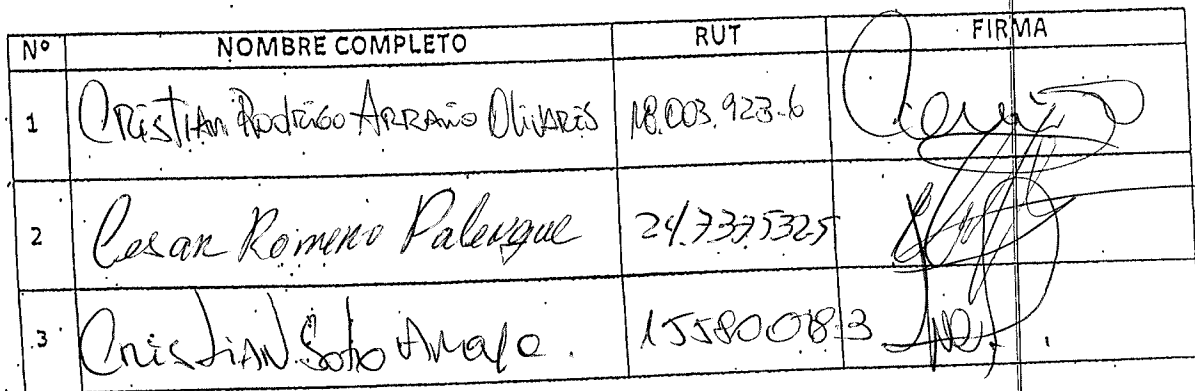 Nº NOMBRE COMPLETO RUT FIRMA
1 Cristian Rodrigo Arraño Olivares 18.003.923-6
2 Cesar Romero Palenque 24.7375325
3 Cristian Soto Amaya. 15580078-3